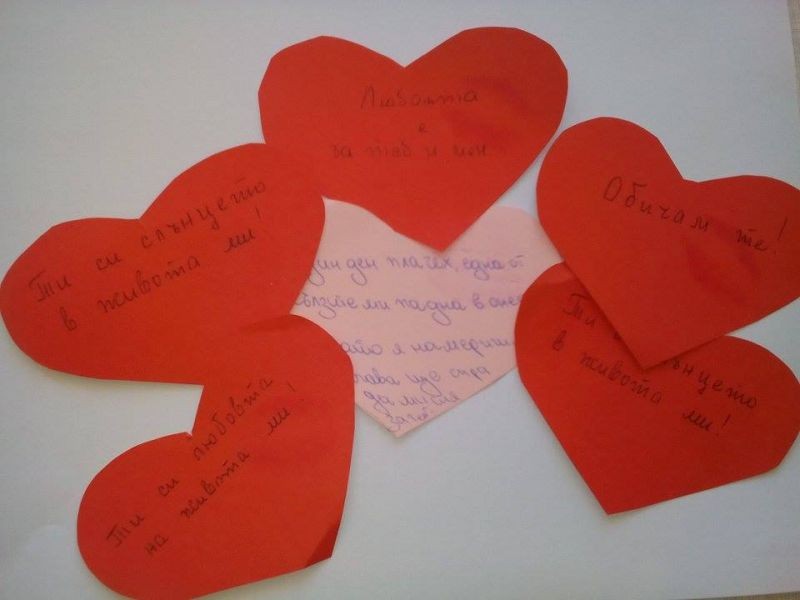 Любовта
е
за теб и мен
Обичам те!
Ти си слънцето
в живота ми!
дин ден плачех, една от
сълзите ми падна в
ато я намериш
тогава ще спра
да мисля
за теб
Ти слънцето
в живота ми!
Ти си любовта
на живота ми!